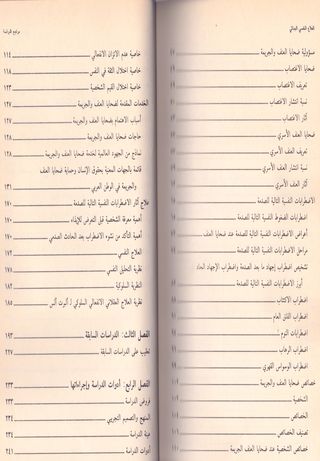 العلاج النفسي الجنائي
مسؤولية ضحايا العنف والجريمة
ضحايا الاغتصاب
تعريف الاغتصاب
نسبة انتشار الاغتصاب
آثار الاغتصاب
ضحايا العنف الأسري
تعريف العنف الأسري
نسبة انتشار العنف الأسري
آثار العنف الأسري
الاضطرابات النفسية التالية للصدمة
اضطراب الضغوط النفسية التالية للصدمة
أعراض الاضطرابات النفسية التالية للصدمة عند ضحايا العنف
مراحل الاضطرابات النفسية التالية للصدمة
تشخيص اضطراب إجهاد ما بعد الصدمة واضطراب الإجهاد الحاد
أبرز الاضطرابات النفسية التالية للصدمة
اضطراب الاكتئاب
اضطراب القلق العام
اضطرابات النوم
اضطراب الرهاب
اضطراب الوسواس القهري
خصائص ضحايا العنف والجريمة
الشخصية
الخصائص
تصنيف الخصائص
الخصائص الشخصية عند ضحايا العنف والجريمة
خاصية عدم الاتزان الانفعالي ١١٤
خاصية اختلال الثقة في النفس ١١٨
خاصية اختلال القيم الشخصية ١٢٣
الخدمات المقدمة لضحايا العنف والجريمة ١٢٧
أسباب الاهتمام بضحايا العنف والجريمة ١٢٧
حاجات ضحايا العنف والجريمة ١٢٨
نماذج من الجهود العالمية لخدمة ضحايا العنف والجريمة ١٢٨
قائمة بالجهات المعنية بحقوق الإنسان وحماية ضحايا العنف
والجريمة في الوطن العربي ١٣١
علاج آثار الاضطرابات النفسية التالية للصدمة ١٧٠
أهمية معرفة الشخصية قبل التعرض للإيذاء ١٧٠
أهمية التأكد من نشوء الاضطراب بعد الحادث الصدمي ١٧٠
العلاج النفسي ١٧٢
نظرية التحليل النفسي ١٧٥
النظرية السلوكية
نظرية العلاج العقلاني الانفعالي السلوكي لـ ألبرت أليس ١٨٥
الفصل الثالث: الدراسات السابقة ١٩٣
تعقيب على الدراسات السابقة ٢٢٧
الفصل الرابع: أدوات الدراسة وإجراءاتها ٢٣٣
فروض الدراسة ٢٣٣
المنهج والتصميم التجريبي ٢٣٤
عينة الدراسة ٢٣٤
أدوات الدراسة ٢٤١